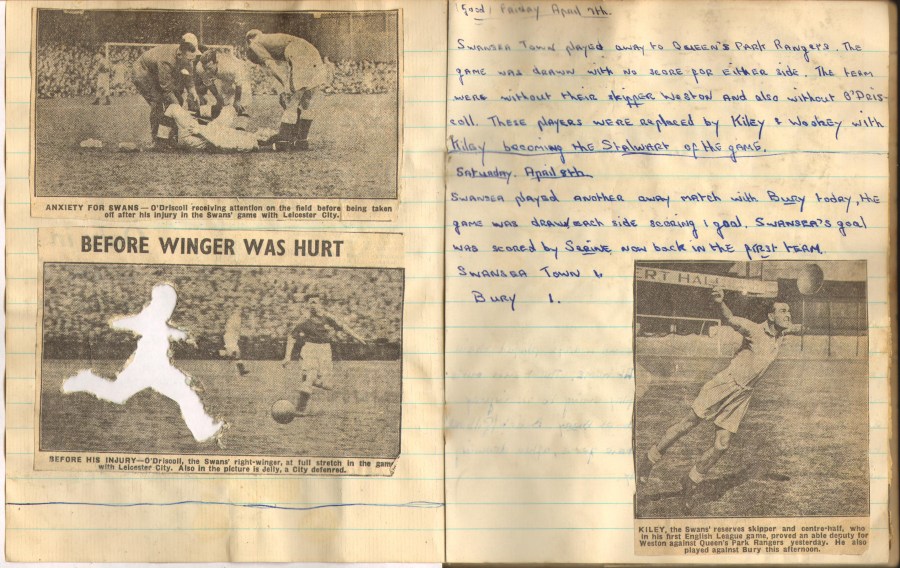 ANXIETY FOR SWANS — O'Driscoll receiving attention on the field before being taken
off after his injury in the Swans' game with Leicester City.
BEFORE WINGER WAS HURT
BEFORE HIS INJURY—O'Driscoll, the Swans' right-winger, at full stretch in the game
with Leicester City. Also in the picture is Jelly, a City defenred.
(Good) Friday April 7th.
Swansea Town played away to Queen's Park Rangers. The
game was drawn with no score for either side. The team
were without their skipper Weston and also without O'Dris-
coll. These players were replaced by Kiley & Wookey with
Kiley becoming the Stalwart of the game.
Saturday. April 8th
Swansea played another away match with Bury today, the
game was drawn each side scoring 1 goal. Swansea's goal
was scored by Scrine now back in the first team.
Swansea Town 1.
Bury 1.
ERT HALL
KILEY, the Swans' reserves skipper and centre-half, who
in his first English League game, proved an able deputy for
Weston against Queen's Park Rangers yesterday. He also
played against Bury this afternoon.